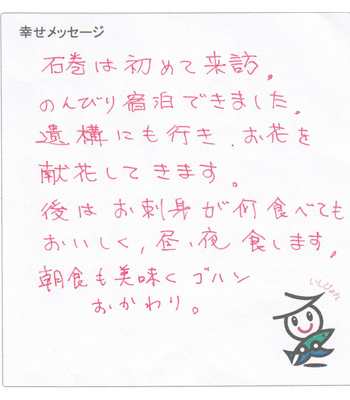 幸せメッセージ
石巻は初めて来訪。
のんびり宿泊できました。
遺構にも行き、お花を
献花してきます。
後はお刺身が何食べても
おいしく、昼い夜食します。
朝食も美味くゴハン
おかわり。
いしぴょん